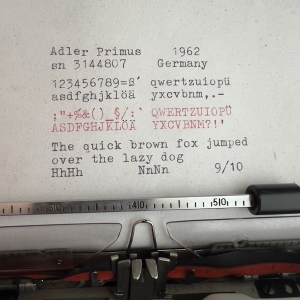 Adler Primus 1962
sn 3144807 Germany
123456789=ß´ qwertzuiopü
asdfghjklöä yxcvbnm,.-
;"+%&()_§/:` QWERTZUIOPÜ
ASDFGHJKLÖÄ YXCVBNM?!'
The quick brown fox jumped
over the lazy dog
HhHh NnNn 9/10
40
50